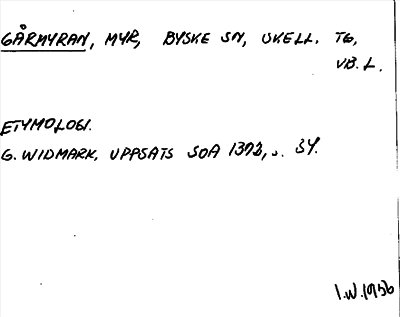 GÅRMYRAN, MYR, BYSKE SN, SKELL. TG,
VB. L.
ETYMOLOGI.
G. WIDMARK, UPPSATS SOA 1392, s. 34.
I.W. 1956